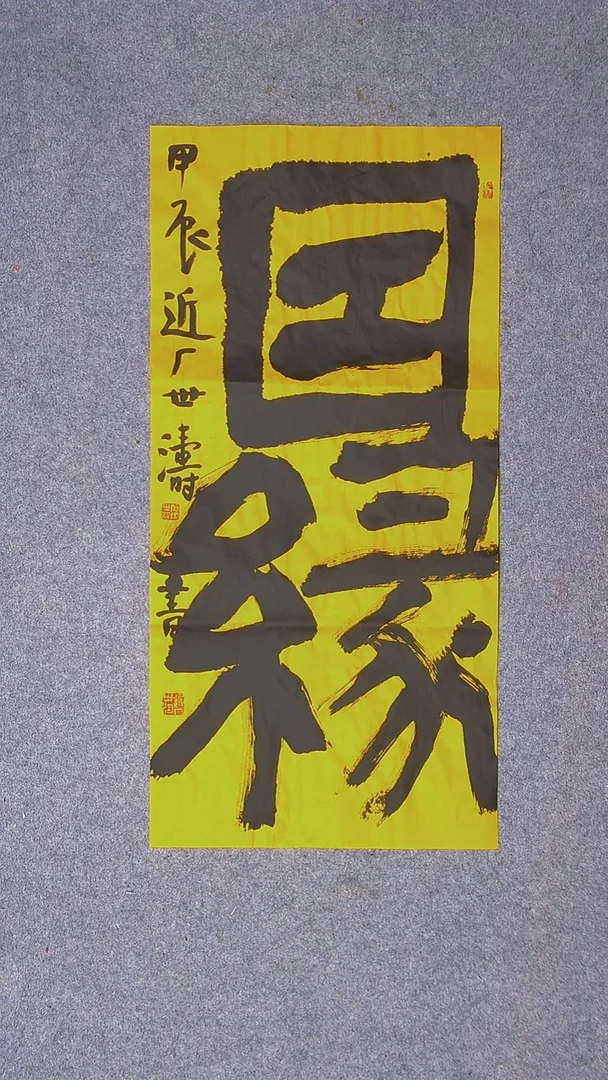 因緣
甲辰近厂世濤書